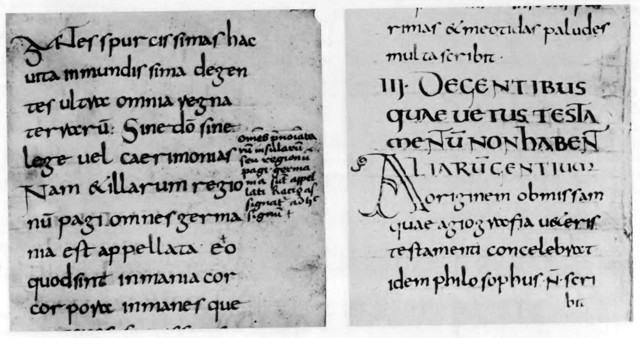 spurcissimas hac
uita inmundissima degen
tes ultra omnia regna
terrarū: Sine dō sine
lege uel caerimonias
Nam & illarum regio
nū pagi omnes germa
nia est appellata eo
quod sint inmania cor
corpora inmanes que
omēs
rū insularū
seu regionū
pagi germa
nia sūt appel
lati
signat ad
signū †
rimas & meotidas paludes
multa scribit.
III. DEGENTIBUS
QUAE UETUS TESTA
MENTŪ NON HABENT
ALIARŪ GENTIUM
originem obmissam
quae agiografia ueteris
testamenti concelebrat
idem philosophus N̄ scri
bit